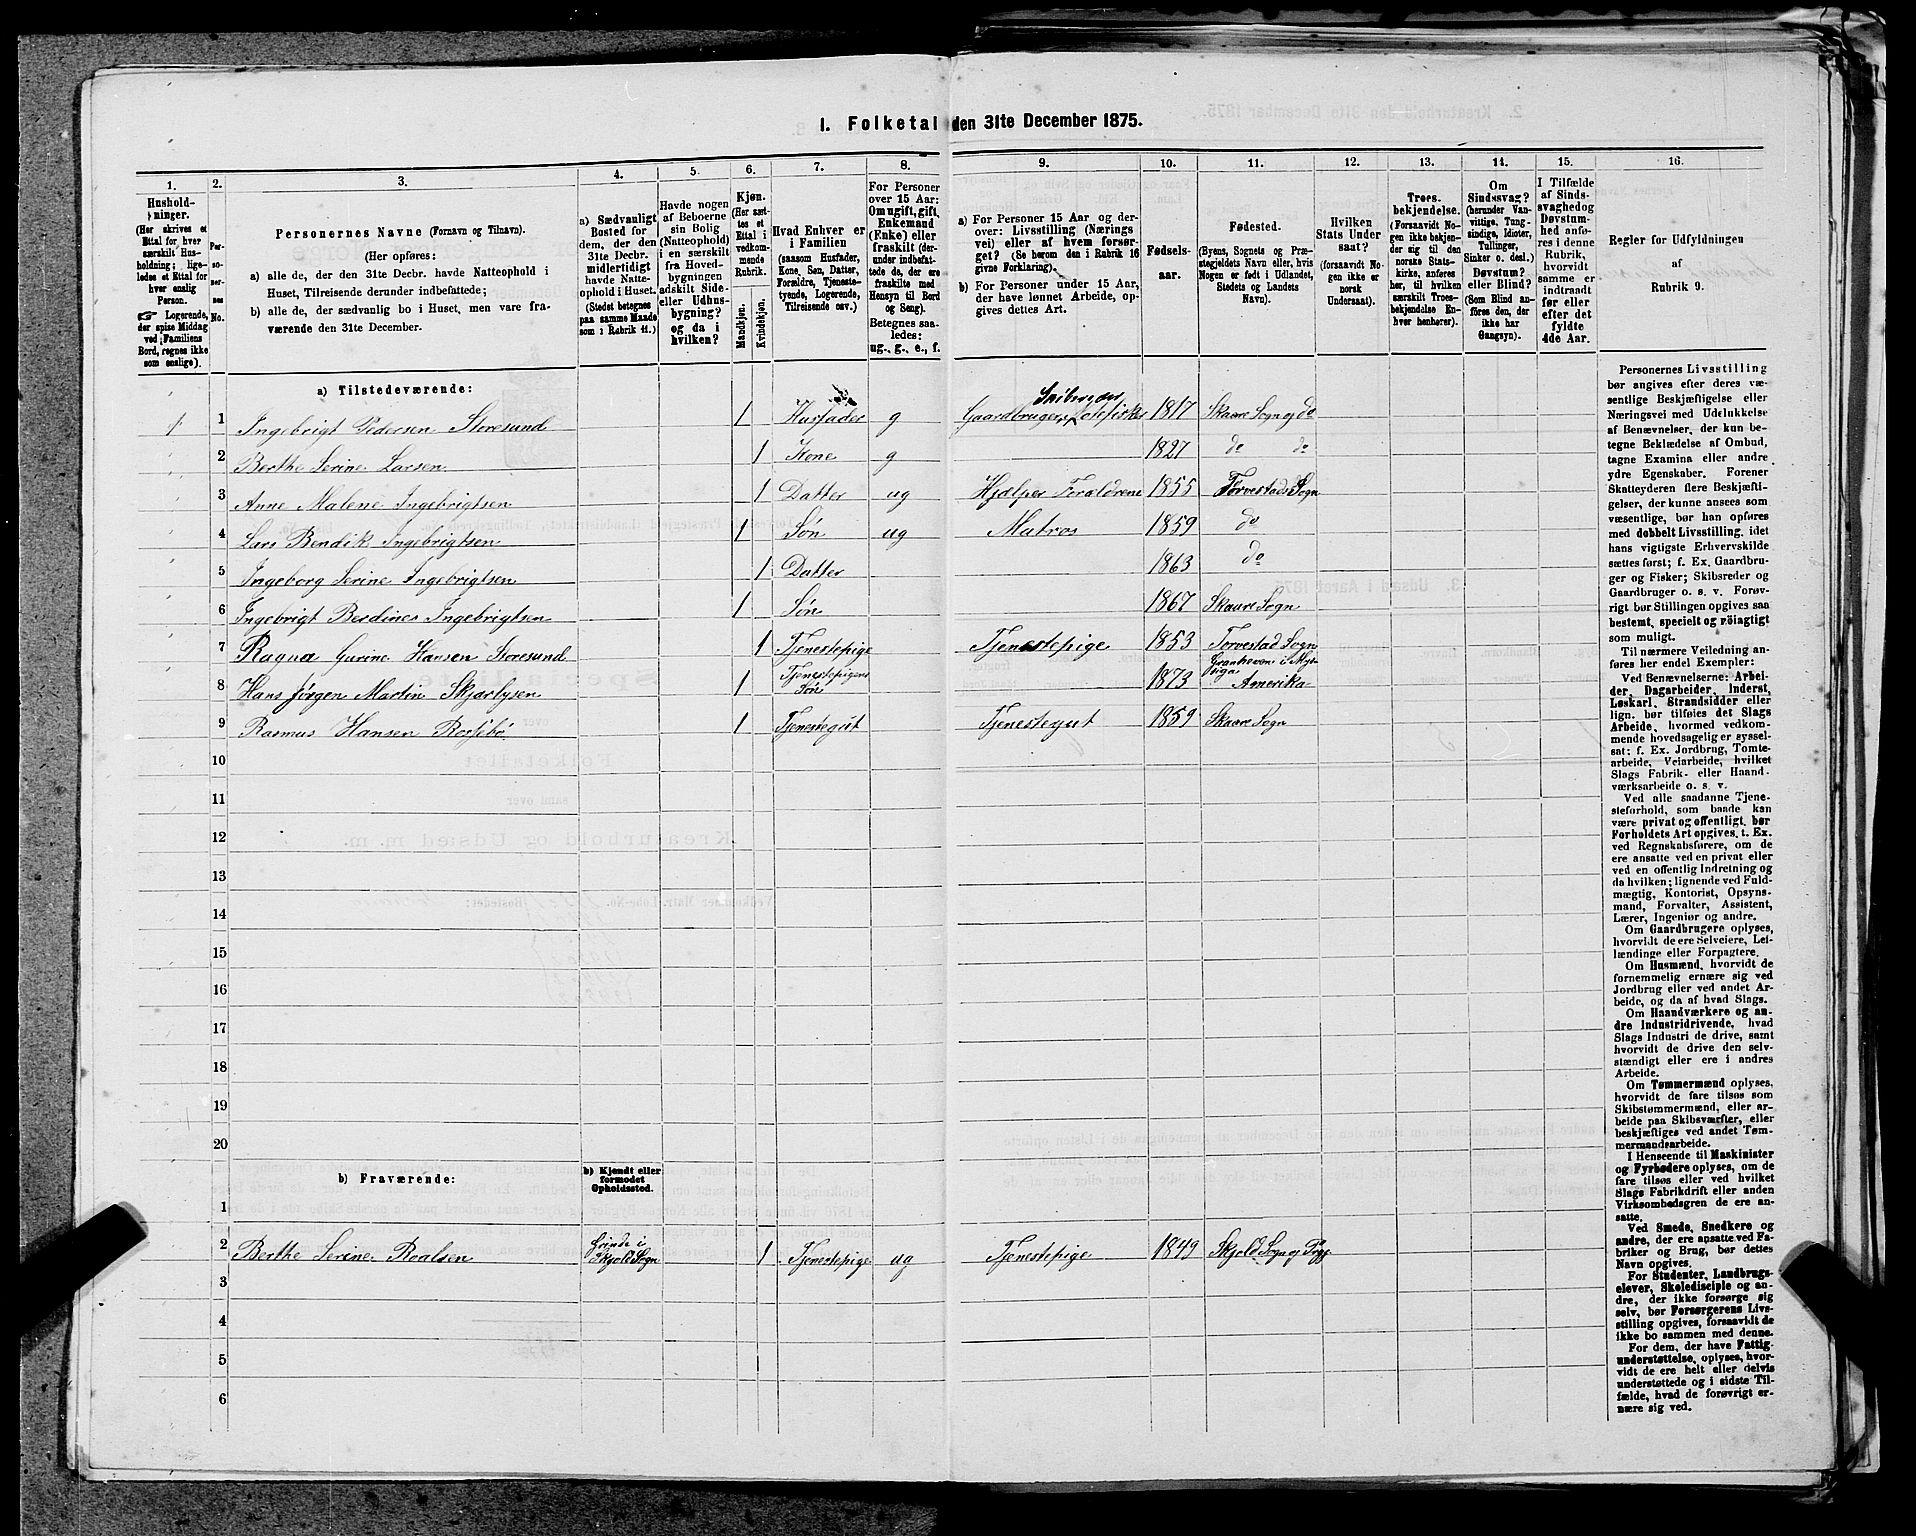 1. Folketal den 31te December 1875.
1.
2.
3.
4.
5.
6.
7.
8.
9.
10.
11.
12.
13.
14.
15.
16.
Hushold-
ninger.
(Her skrives et
Ettal for hver
særskilt Hus-
holdning; lige-
ledes et Ettal for
hver enslig
Person.
☞ Logerende,
der spise Middag
ved Familiens
Bord, regnes ikke
som enslige).
Per-
so-
ner-
nes
No.
Personernes Navne (Fornavn og Tilnavn).
(Her opføres:
a) alle de, der den 31te Decbr. havde Natteophold i
Huset, Tilreisende derunder indbefattede;
b) alle de, der sædvanlig bo i Huset, men vare fra-
værende den 31te December.
a) Sædvanligt
Bosted for
dem, der den
31te Decbr.
midlertidigt
havde Natte-
ophold i Huset.
(Stedet betegnes
paa samme Maade
som i Rubrik 11.)
Havde nogen
af Beboerne
sin Bolig
(Natteophold)
i en særskilt
fra Hoved-
bygningen
adskilt Side-
eller Udhus-
bygning?
og da i
hvilken?
Kjøn.
(Her sæt-
tes et
Ettal i
vedkom-
mende
Rubrik.
Mandkjøn.
Kvindekjøn.
Hvad Enhver er
i Familien
(saasom Husfader,
Kone, Søn, Datter,
Forældre, Tjeneste-
tyende, Logerende,
Tilreisende osv.)
For Personer
over 15 Aar:
Om ugift, gift,
Enkemand
(Enke) eller
fraskilt (der-
under indbefat-
tede de, der ere
fraskilte med
Hensyn til Bord
og Seng).
Betegnes saa-
ledes:
ug., g., e., f.
a) For Personer 15 Aar og der-
over: Livsstilling (Nærings
vei) eller af hvem forsør-
get? (Se herom den i Rubrik 16
givne Forklaring).
b) For Personer under 15 Aar,
der have lønnet Arbeide, op-
gives dettes Art.
Fødsels-
aar.
Fødested.
(Byens, Sognets og Præ-
stegjeldets Navn eller, hvis
Nogen er født i Udlandet,
Stedets og Landets
Navn).
Hvilken
Stats Under
saat?
(forsaavidt No-
gen ikke er
norsk
Undersaat).
Troes-
bekjendelse.
(Forsaavidt No-
gen ikke bekjen-
der sig til den
norske Stats-
kirke, anføres
her, til hvilken
særskilt Troes-
bekjendelse En-
hver henhører).
Om
Sindssvag?
(herunder Van-
vittige, Tung-
sindige, Idioter,
Tullinger,
Sinker o. desl.)
Døvstum?
eller Blind?
(Som Blind an-
føres den, der
ikke har
Gangsyn).
I Tilfælde
af Sinds-
svaghed og
Døvstum-
hed, anfø-
res i denne
Rubrik,
hvorvidt
samme er
indtraadt
før eller
efter det
fyldte
4de Aar.
Regler for Udfyldningen
af
Rubrik 9.
a) Tilstedeværende:
1 1 Ingebrigt Pedersen Storesund 1 Husfader g Gaardbruger, 1817 Skaare Sogn og do
2 Berthe Serine Larsen 1 Kone g 1827 do do
3 Anne Malene Ingebrigtsen 1 Datter ug Hjælper Forældrene 1855 Torvestads Sogn
4 Lars Bendik Ingebrigtsen 1 Søn ug Matros 1859 do
5 Ingeborg Serine Ingebrigtsen 1 Datter 1863 do
6 Ingebrigt Berdines Ingebrigtsen 1 Søn 1867 Skaare Sogn
7 Ragna Gurine Hansen Storesund 1 Tjenestepige Tjenestepige 1853 Torvestad Sogn
8 Hans Jørgen Martin 1 Tjenestepigens Søn 1873 Amerika
9 Rasmus Hansen Rossebø 1 Tjenestegut Tjenestegut 1859 Skaare Sogn
10
11
12
13
14
15
16
17
18
19
20
b) Fraværende:
b) Kjendt eller
formodet
Opholdssted.
1
2 Berthe Serine Roalsen Grinde i Skjold Sogn 1 Tjenestepige ug Tjenestepige 1849 Skjold Sogn og
3
4
5
6
Personernes Livsstilling
bør angives efter deres væ-
sentlige Beskjæftigelse eller
Næringsvei med Udelukkelse
af Benævnelser, der kun be-
tegne Beklædelse af Ombud,
tagne Examina eller andre
ydre Egenskaber. Forener
Skatteyderen flere Beskjæfti-
gelser, der kunne ansees som
væsentlige, bør han opføres
med dobbelt Livsstilling, idet
hans vigtigste Erhvervskilde
sættes først; f. Ex. Gaardbru-
ger og Fisker; Skibsreder og
Gaardbruger o. s. v. Forøv-
rigt bør Stillingen opgives saa
bestemt, specielt og nøiagtigt
som muligt.
Til nærmere Veiledning an-
føres her endel Exempler:
Ved Benævnelserne: Arbei-
der, Dagarbeider, Inderst,
Løskarl, Strandsidder eller
lign. bør tilføies det Slags
Arbeide, hvormed vedkom-
mende hovedsagelig er syssel-
sat; f. Ex. Jordbrug, Tomte-
arbeide, Veiarbeide, hvilket
Slags Fabrik- eller Haand-
værksarbeide o. s. v.
Ved alle saadanne Tjene-
steforhold, som baade kan
være privat og offentligt, bør
Forholdets Art opgives, t. Ex.
ved Regnskabsførere, om de
ere ansatte ved en privat eller
ved en offentlig Indretning og
da hvilken; lignende ved Fuld-
mægtig, Kontorist, Opsyns-
mand, Forvalter, Assistent,
Lærer, Ingeniør og andre.
Om Gaardbrugere oplyses,
hvorvidt de ere Selveiere, Lei-
lændinge eller Forpagtere.
Om Husmænd, hvorvidt de
fornemmelig ernære sig ved
Jordbrug eller ved andet Ar-
beide, og da af hvad Slags.
Om Haandværkere og an-
dre Industridrivende, hvad
Slags Industri de drive, samt
hvorvidt de drive den selv-
stændigt eller ere i andres
Arbeide.
Om Tømmermænd oplyses,
hvorvidt de fare tilsøs som
Skibstømmermænd, eller ar-
beide paa Skibsværfter, eller
beskjæftiges ved andet Tøm-
mermandsarbeide.
I Henseende til Maskinister
og Fyrbødere oplyses, om de
fare tilsøs eller ved hvilket
Slags Fabrikdrift eller anden
Virksomhedsgren de ere an-
satte.
Ved Smede, Snedkere og
andre, der ere ansatte ved Fa-
briker og Brug, bør dettes
Navn opgives.
For Studenter, Landbrugs-
elever, Skoledisciple og an-
dre, der ikke forsørge sig
selv, bør Forsørgerens Livs-
stilling opgives, forsaavidt de
ikke bo sammen med denne.
For dem, der have Fattig-
understøttelse, oplyses, hvor-
vidt de ere helt eller delvis
understøttede og i sidste Til-
fælde, hvad de forøvrigt er-
nære sig ved.